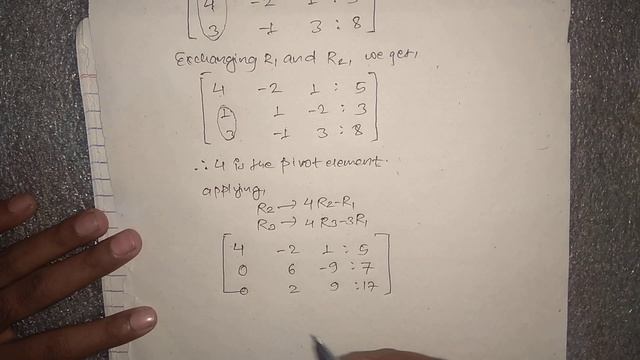 4 -2 1 : 5
3 -1 3 : 8
Exchanging R1 and R2, we get,
4 -2 1 : 5
1 1 -2 : 3
3 -1 3 : 8
∴ 4 is the pivot element.
applying,
R2 → 4R2-R1
R3 → 4R3-3R1
4 -2 1 : 5
0 6 -9 : 7
0 2 9 : 17